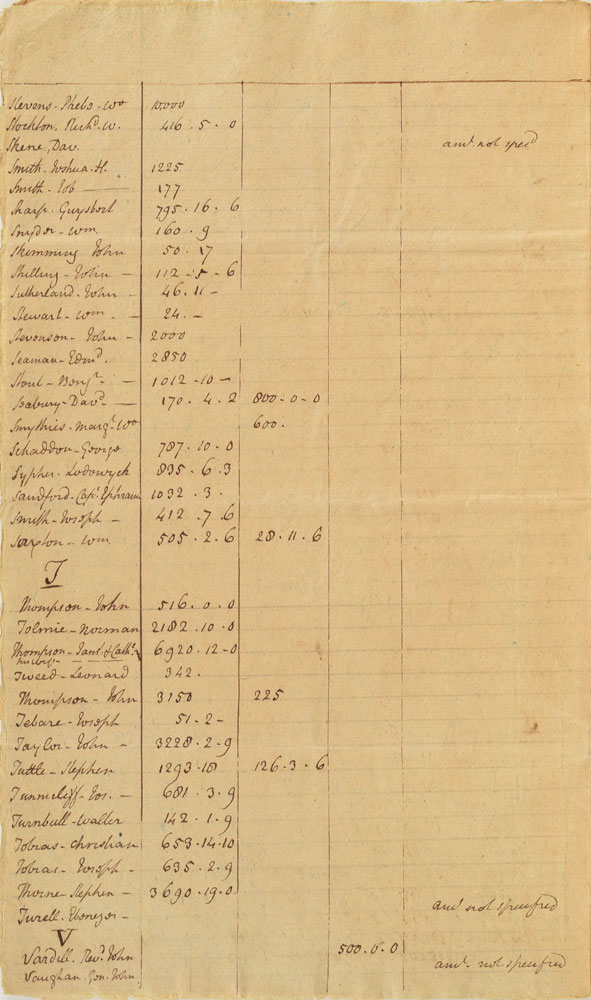 Stevens - Phebe - Wo 10,000
Stockton, Richd. W. 416 . 5 . 0
Skene, Dav. amt. not specd
Smith - Joshua. H. 1225
Smith - Job — 177
Sharp. Guysbert 795 . 16 . 6
Snyder - Wm. 160 . 9
Skimming John 50 . 17
Shilling - John - 112 - 5 - 6
Sutherland - John - 46 . 11 -
Stewart - Wm. - 24 . -
Stevenson - John - 2000
Seaman - Edmd. 2850
Stout - Benjn. - 1012 - 10 -
Seabury - Davd. — 170 . 4 . 2 800 - 0 - 0
Smythies - Margt. Wo 600 .
Schaddon - George 787 . 10 - 0
Sypher. Lodowyck 835 . 6 . 3
Sandford - Capt. Ephraim 1032 . 3 .
Smith - Joseph - 412 . 7 . 6
Saxton - Wm. 505 . 2 . 6 28 . 11 . 6
T
Thompson - John 516 . 0 . 0
Tolmie - Norman 2182 . 10 . 0
Thompson - Jant. & Cathe. 6920 . 12 - 0
Tweed - Leonard 342 .
Thompson - John 3150 225
Tebare - Joseph 51 - 2 -
Taylor - John - 3228 . 2 - 9
Tuttle - Stephen 1293 . 18 126 . 3 . 6
Tunnicliff - Jos. - 681 . 3 . 9
Turnbull - Walter 142 . 1 . 9
Tobias - Christian 653 . 14 . 10
Tobias - Joseph - 635 . 2 . 9
Thorne - Stephen - 3690 . 19 . 0
Turell. Ebenezer - amt. not specified
V
Vardill. Revd. John 500 . 0 . 0
Vaughan. Gen. John. amt. not specified